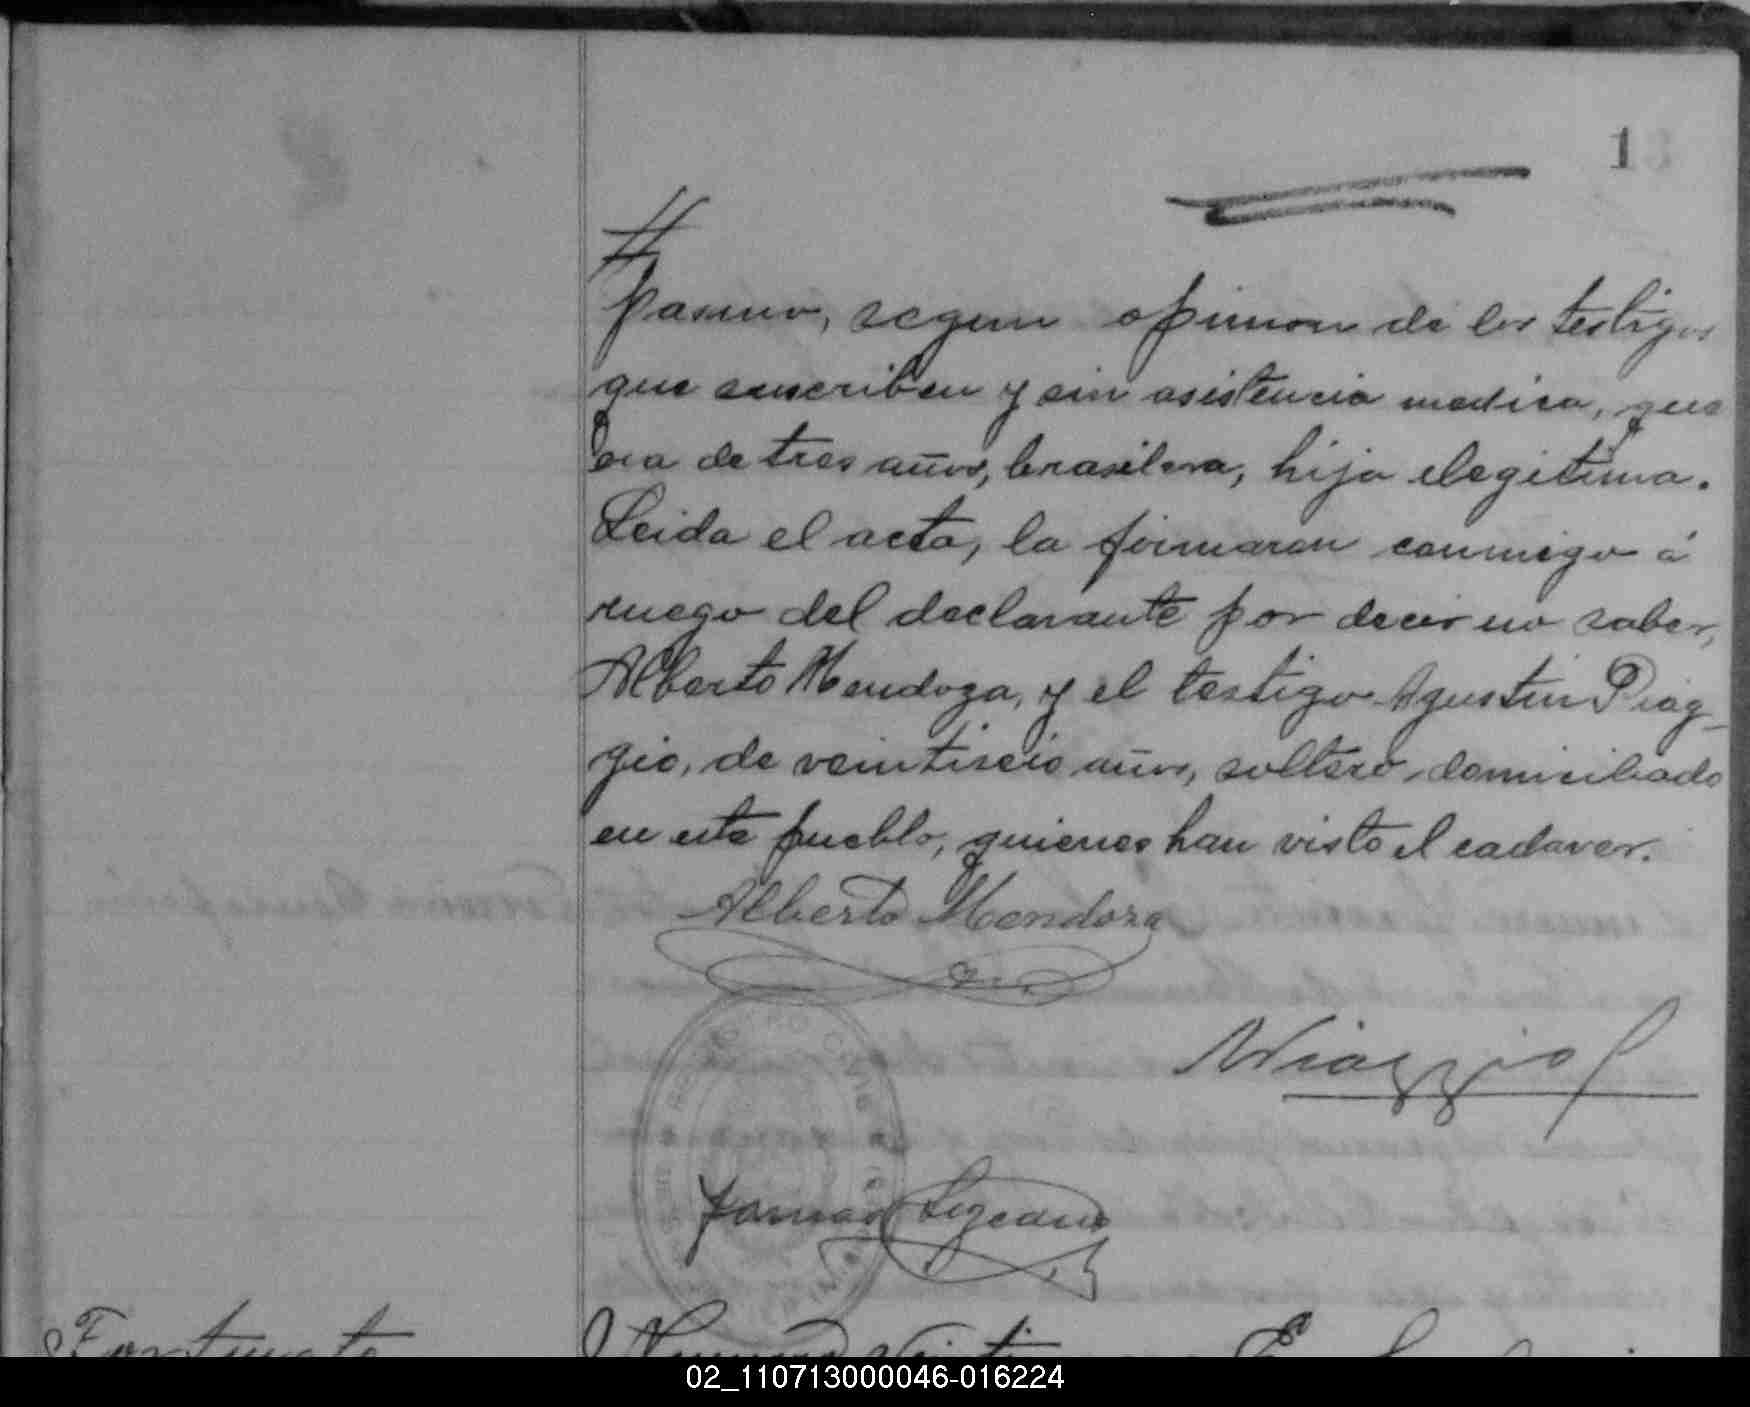 1
#
pasmo, segun opinion de los testigos
que suscriben y sin asistencia medica, que
era de tres años, brasilera, hija ilegitima.
Leida el acta, la firmaron conmigo á
ruego del declarante por decir no saber,
Alberto Mendoza, y el testigo Agustin Piag-
gio, de veintiseis años, soltero, domiciliado
en este pueblo, quienes han visto el cadaver.
Alberto Mendoza
APiaggio
REGISTRO CIVIL
Tomás
Fortunato
Numero Veinti
02_110713000046-016224